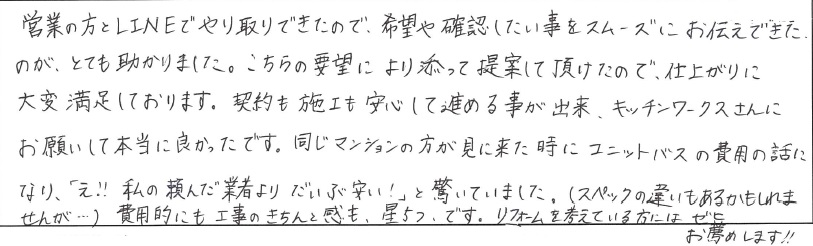 営業の方とLINEでやり取りできたので、希望や確認したい事をスムーズにお伝えできた
のが、とても助かりました。こちらの要望により添って提案して頂けたので、仕上がりに
大変満足しております。契約も施工も安心して進める事が出来、キッチンワークスさんに
お願いして本当に良かったです。同じマンションの方が見に来た時にユニットバスの費用の話に
なり、「え!! 私の頼んだ業者よりだいぶ安い!」と驚いていました。(スペックの違いもあるかもしれま
せんが…) 費用的にも工事のきちんと感も、星5つ、です。リフォームを考えている方にはぜひ
お薦めします!!